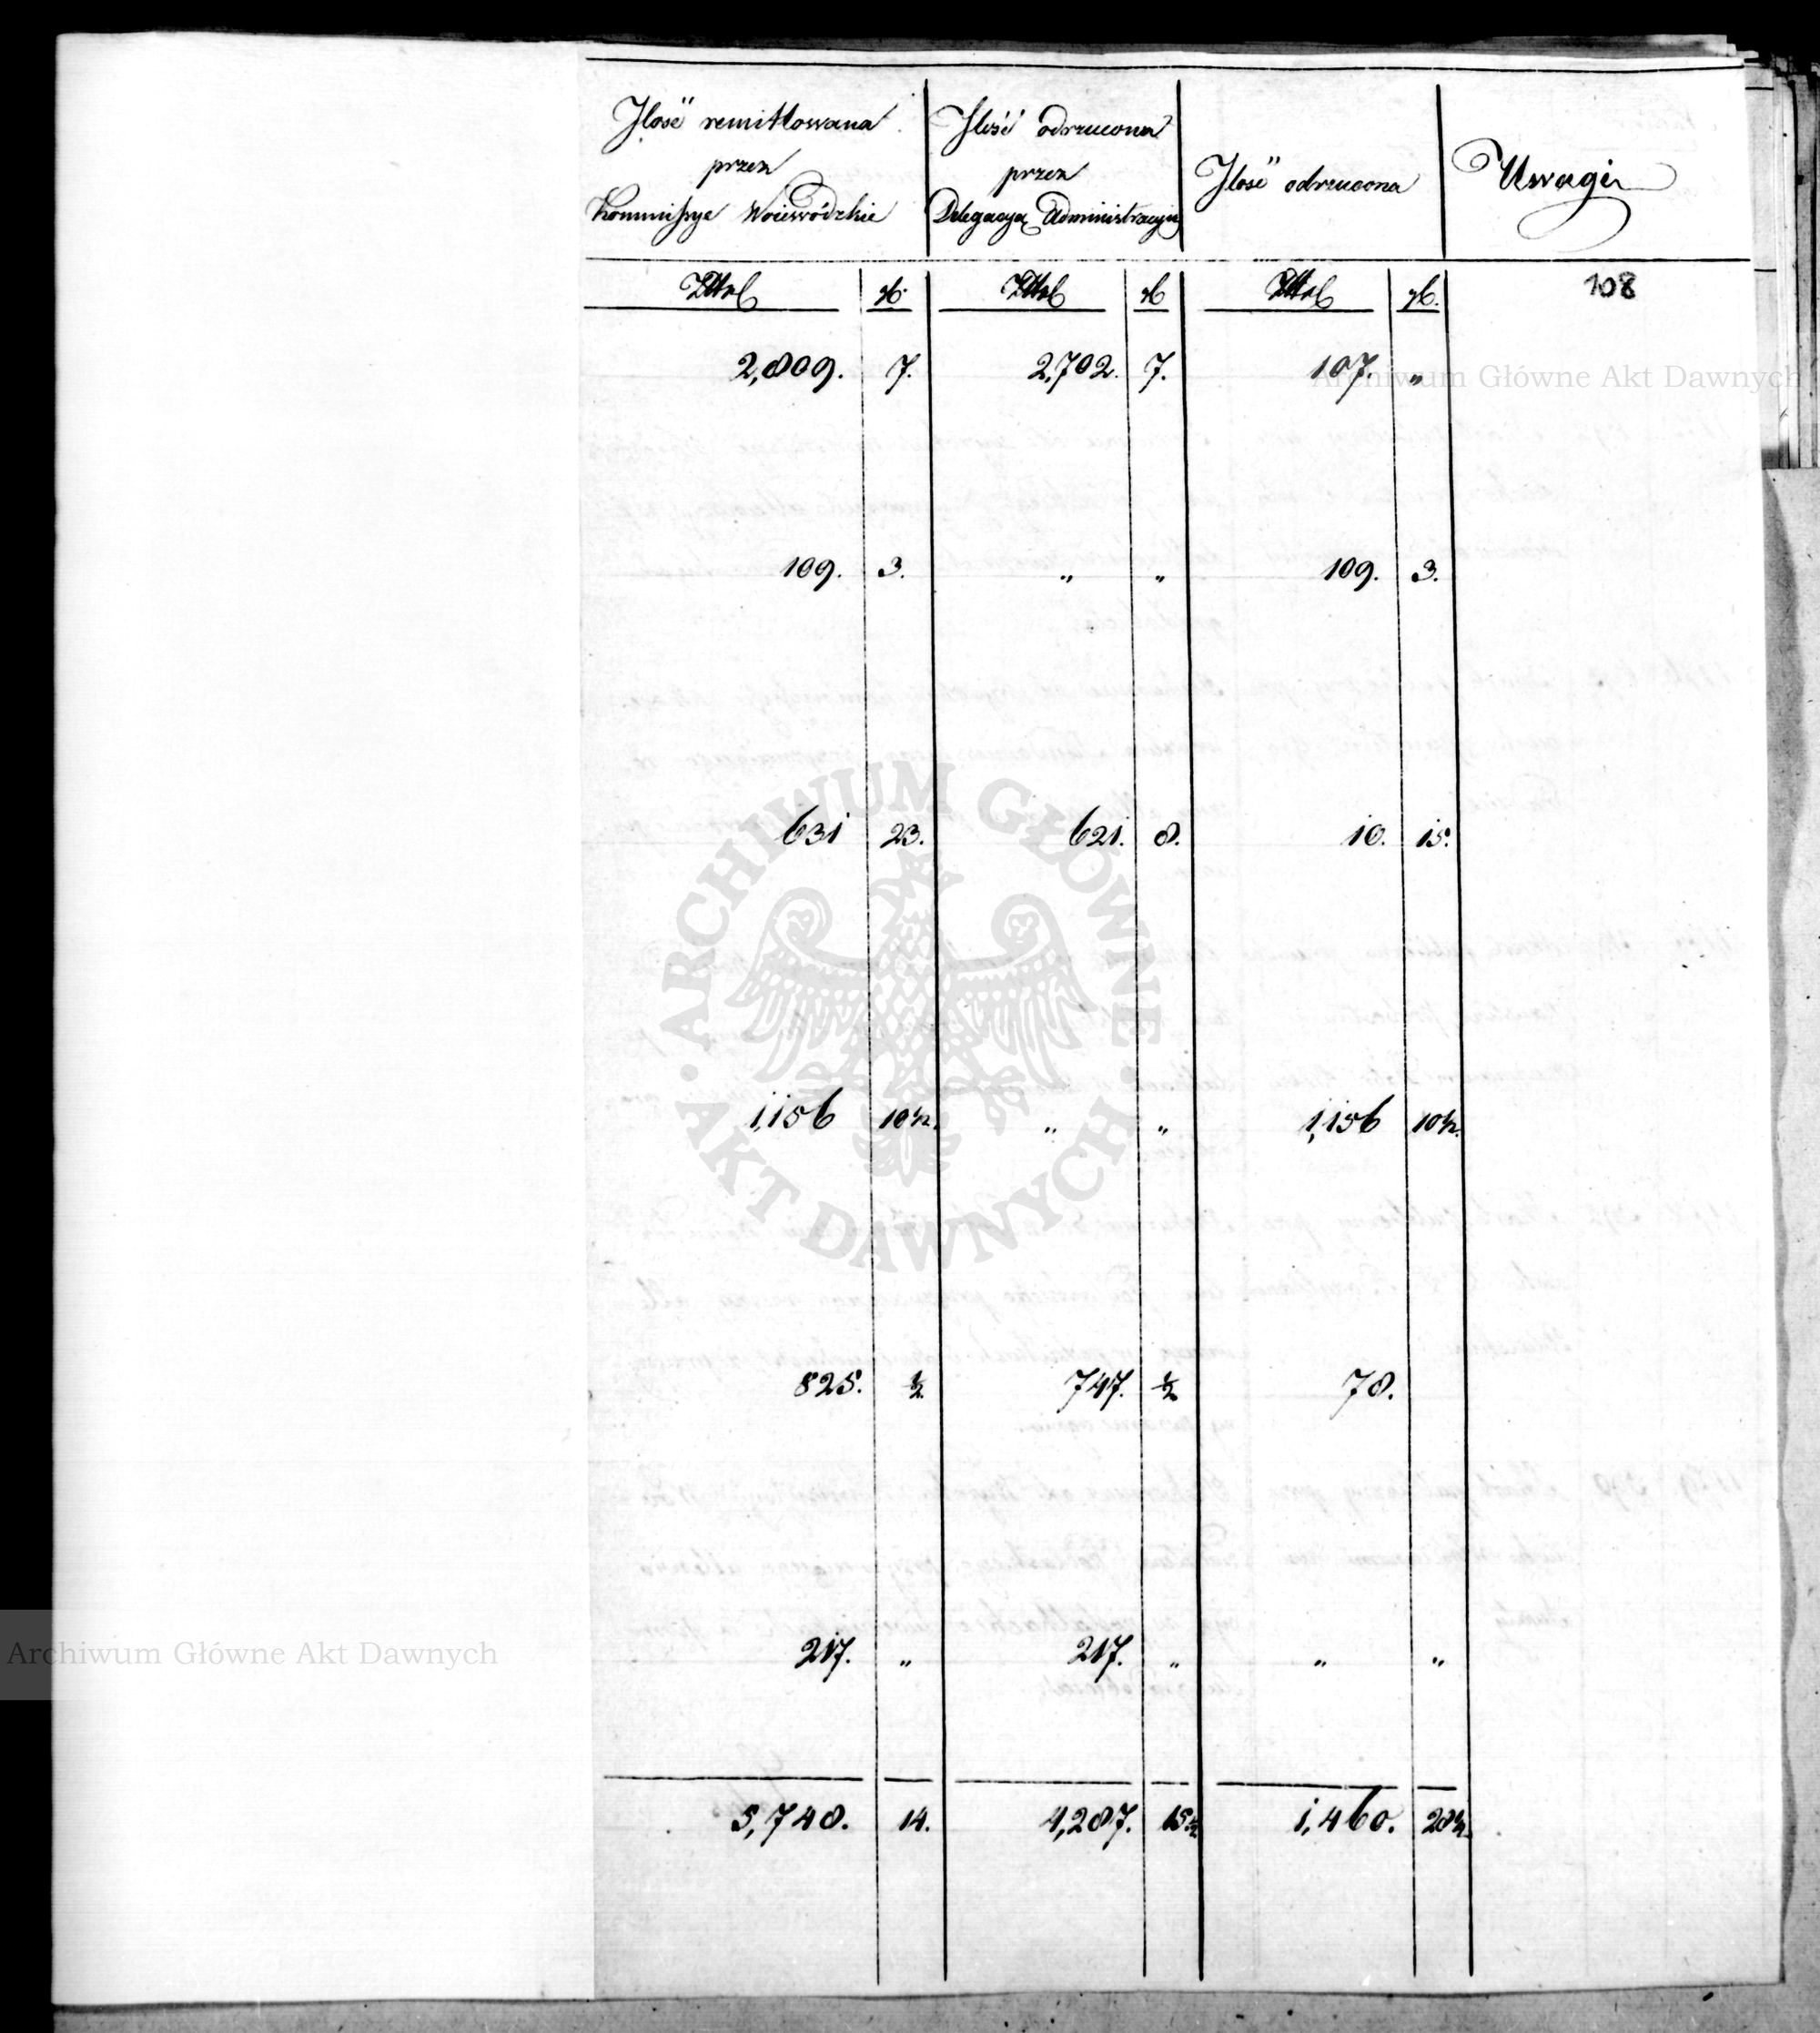 Ilość remittowana
przez
Kommissye Woiewódzkie
Ilość odrzucona
przez
Delegacyą Administracyiną
Ilość odrzucona
Uwagi
108
2,809. 7. 2,702. 7. 107. „
Archiwum Główne Akt Dawnych
109. 3. „ „ 109. 3.
631 23. 621. 8. 10. 15.
ARCHIWUM GŁÓWNE
AKT DAWNYCH
1,156 10½. „ „ 1,156 10½.
825. ½ 747. ½ 78.
217. „ 217. „ „ „
Archiwum Główne Akt Dawnych
5,748. 14. 4,287. 15½ 1,460. 28½